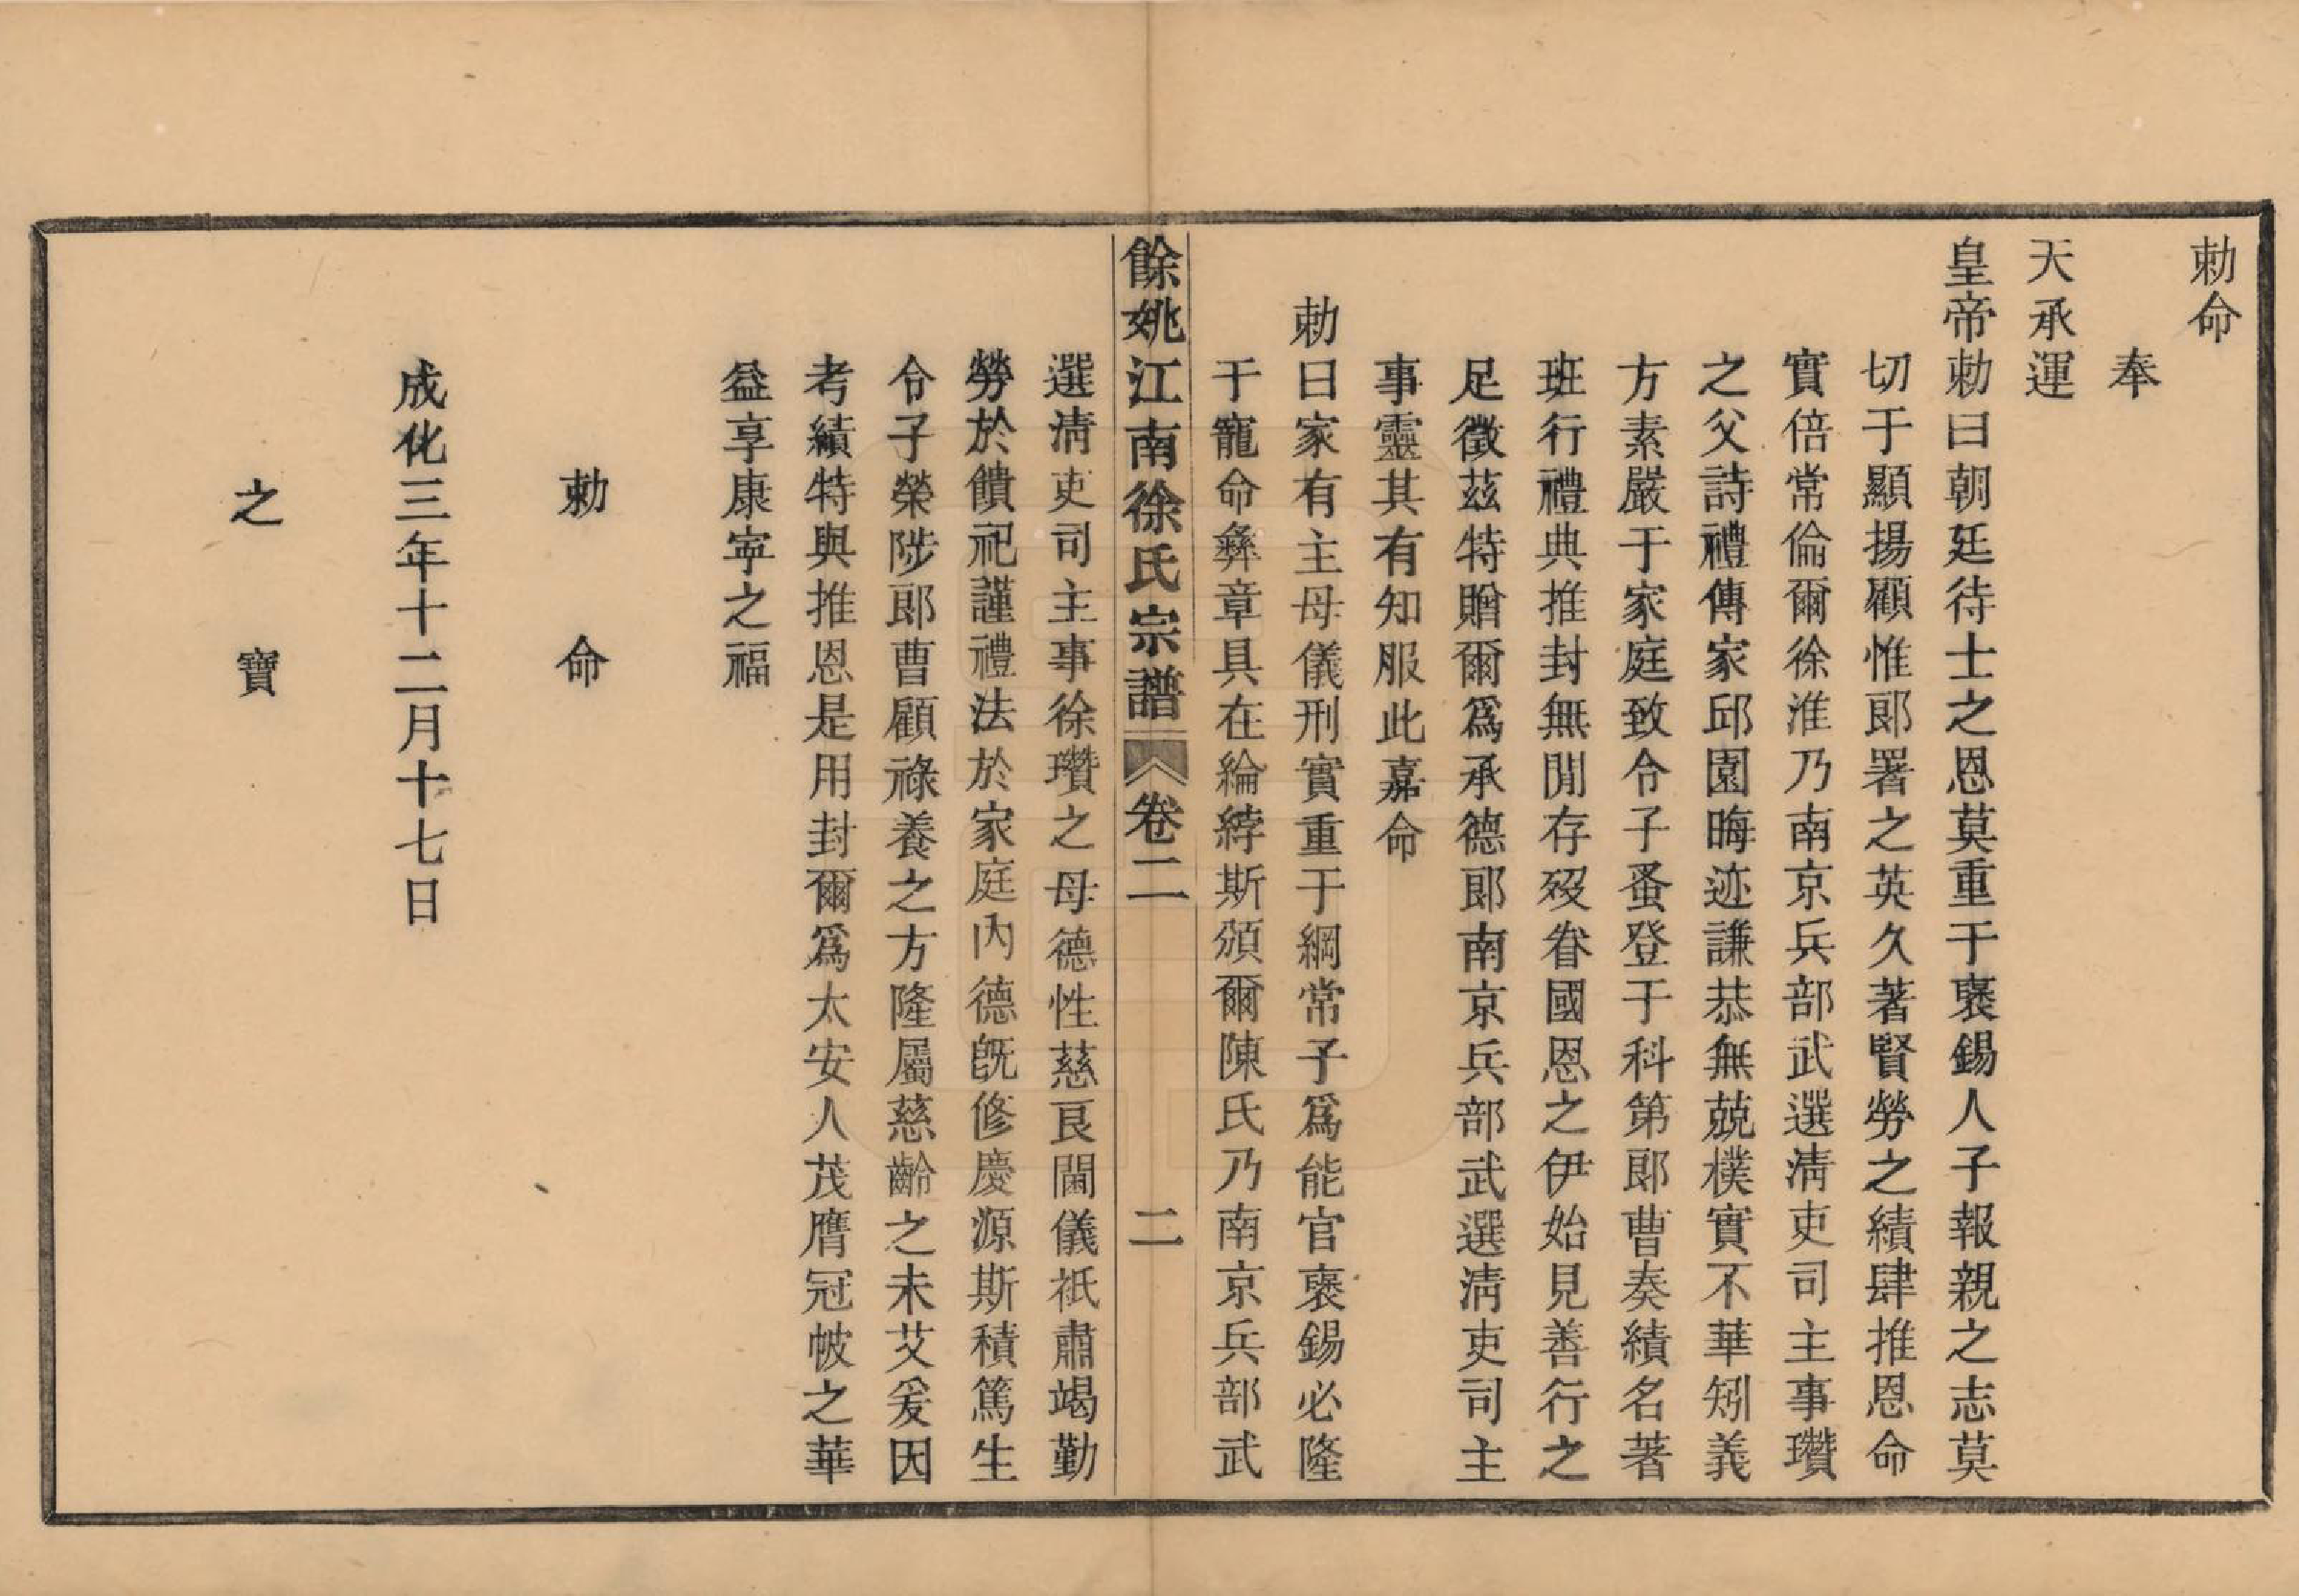 勅命
奉
天承運
皇帝勅曰朝廷待士之恩莫重于褒錫人子報親之志莫
切于顯揚顧惟郎署之英久著賢勞之績肆推恩命
實倍常倫爾徐淮乃南京兵部武選淸吏司主事瓚
之父詩禮傳家邱園晦迹謙恭無兢樸實不華矧義
方素嚴于家庭致令子蚤登于科第郎曹奏績名著
班行禮典推封無閒存歿眷國恩之伊始見善行之
足徵茲特贈爾爲承德郎南京兵部武選淸吏司主
事靈其有知服此嘉命
勅曰家有主母儀刑實重于綱常子爲能官褒錫必隆
于寵命彝章具在綸綍斯頒爾陳氏乃南京兵部武
餘姚江南徐氏宗譜 卷二 二
選淸吏司主事徐瓚之母德性慈良閫儀祇肅竭勤
勞於饋祀謹禮法於家庭內德旣修慶源斯積篤生
令子榮陟郎曹顧祿養之方隆屬慈齡之未艾爰因
考績特與推恩是用封爾爲太安人茂膺冠帔之華
益享康寧之福
勅命
成化三年十二月十七日
之寶